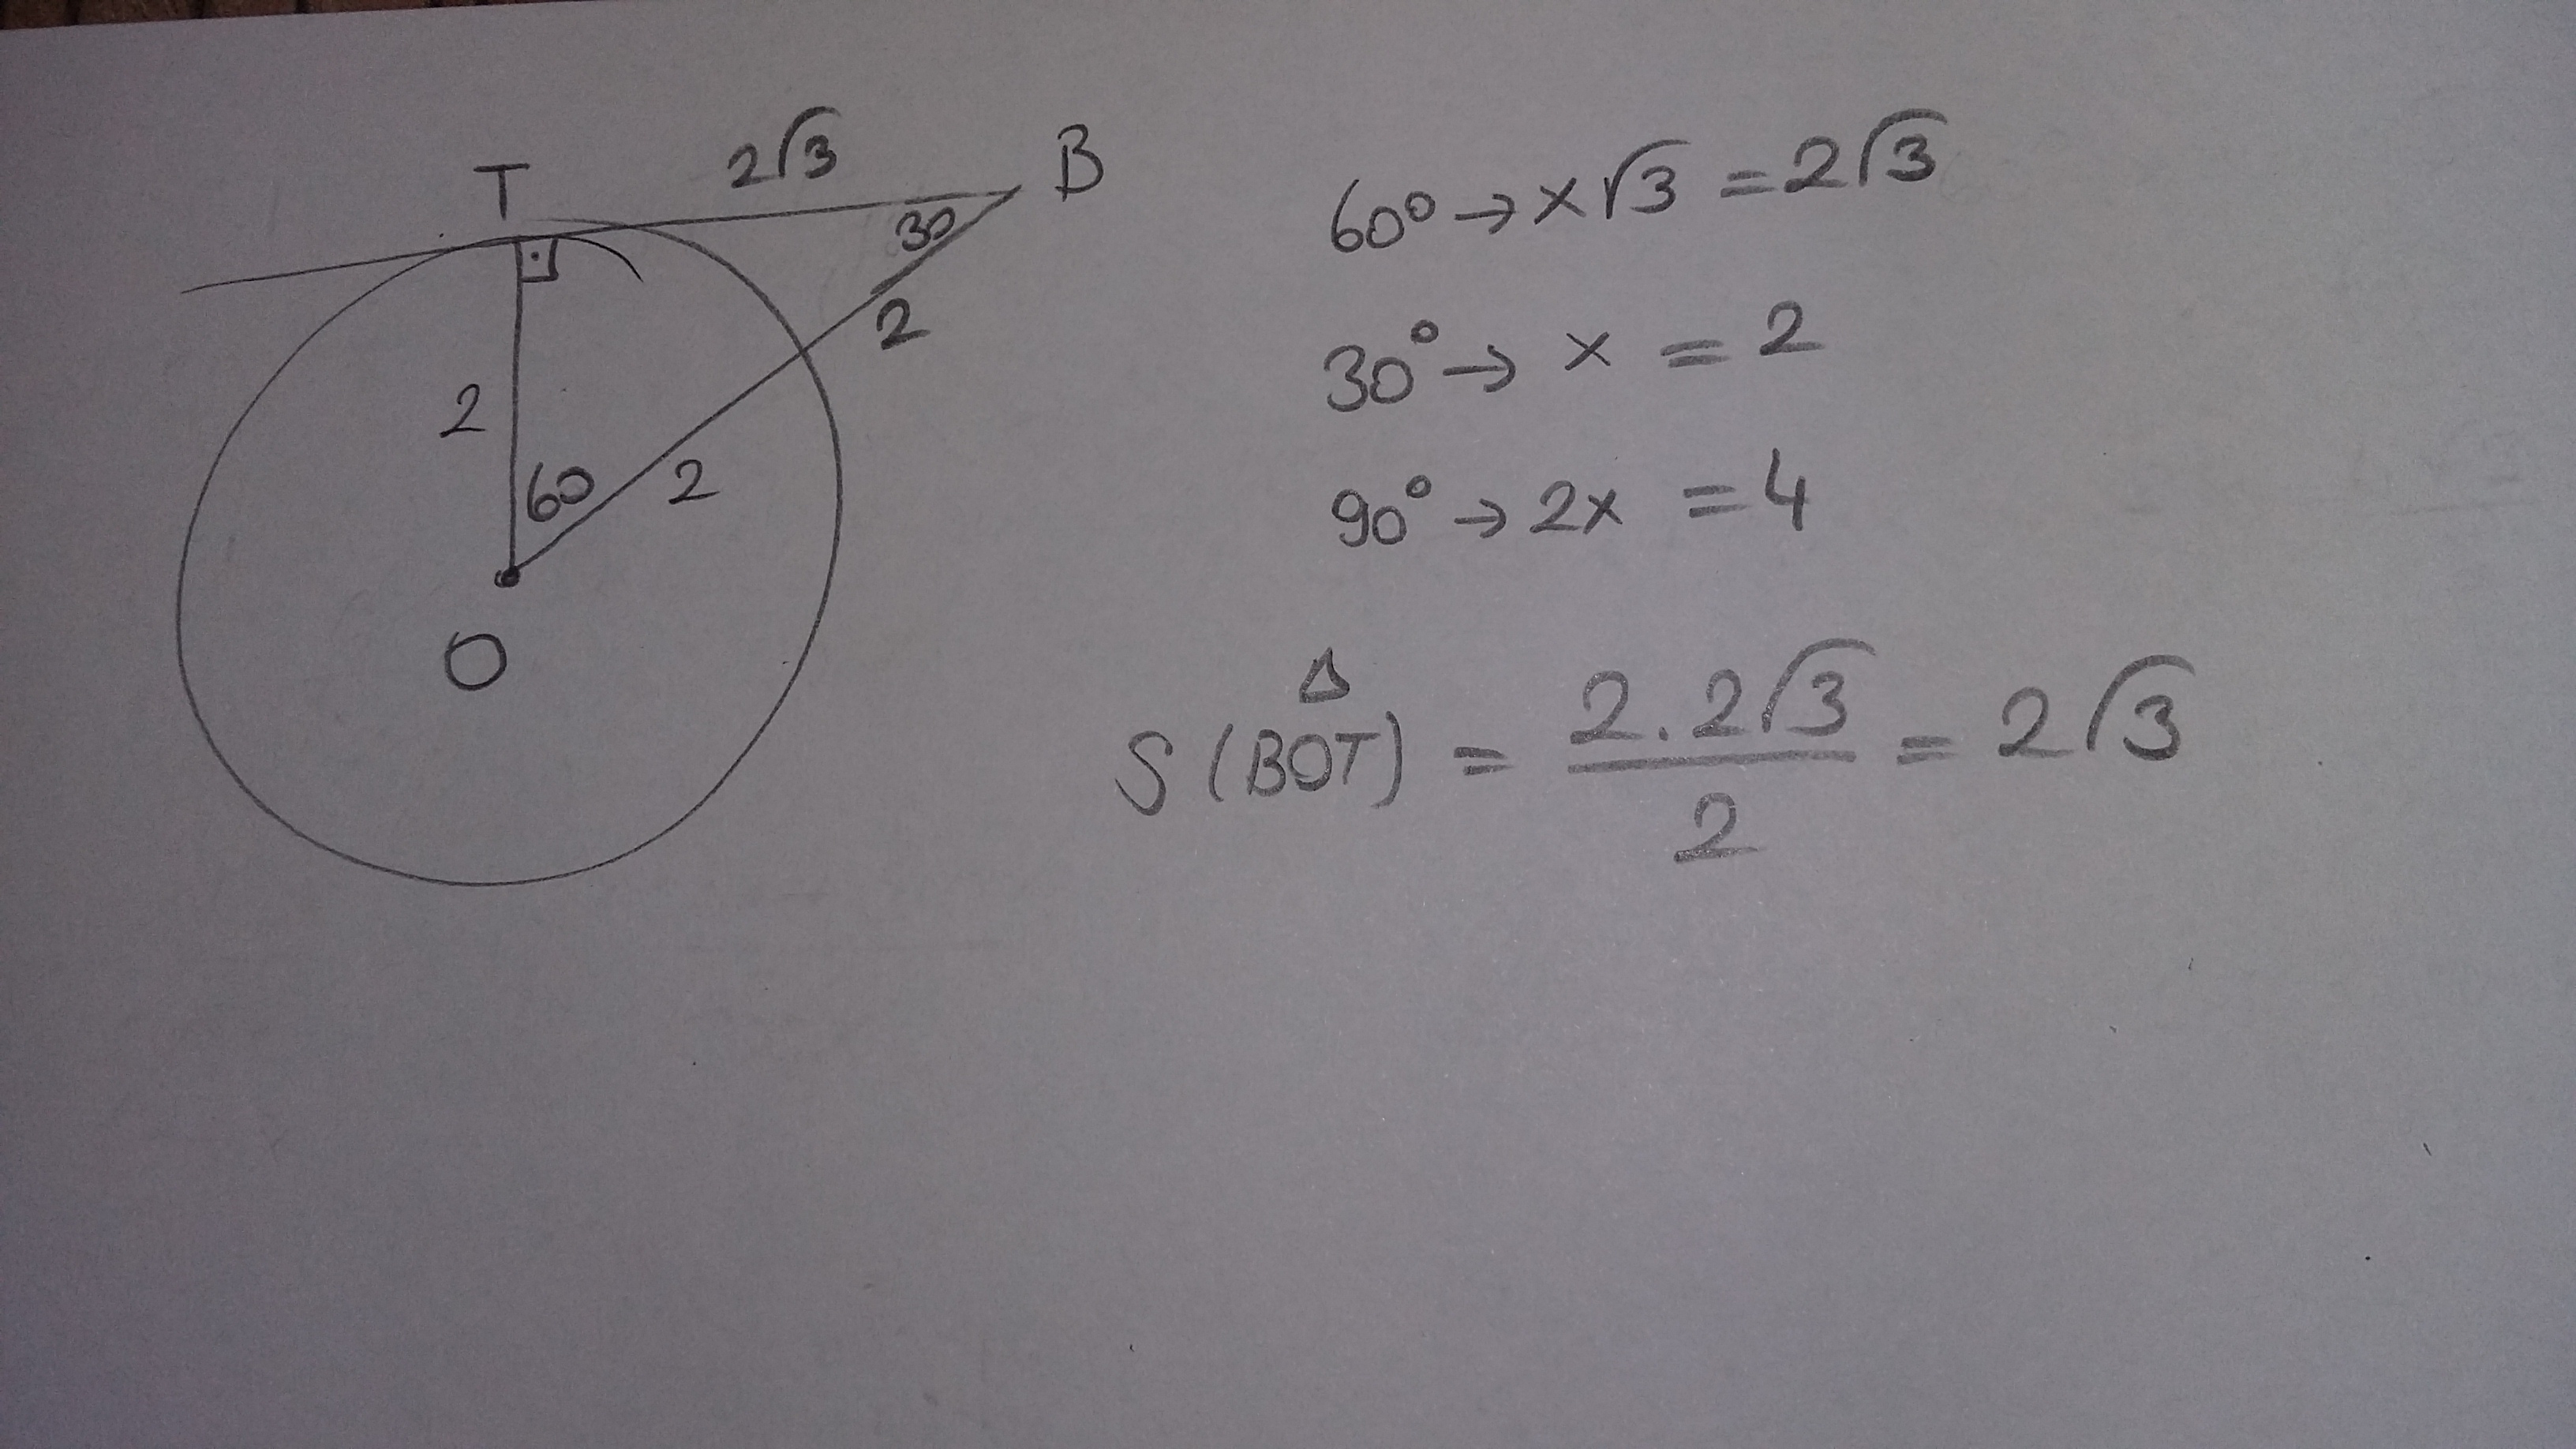 T
2√3
B
30
2
2
60
2
O
60° → x√3 = 2√3
30° → x = 2
90° → 2x = 4
S(BOT) = 2.2√3/2 = 2√3